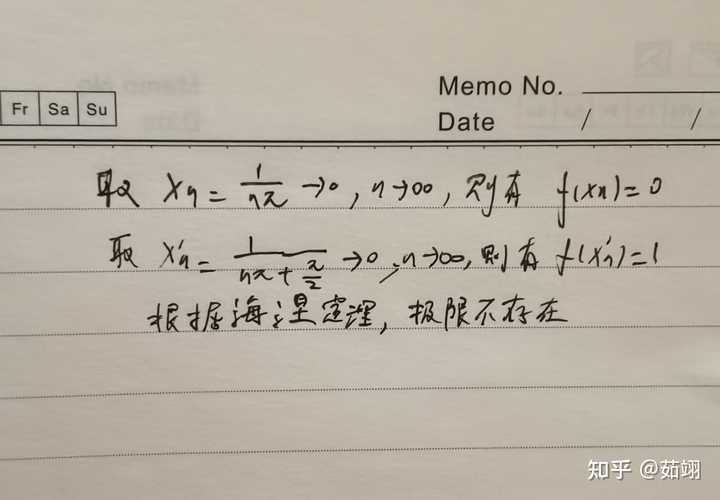 Memo No.
Fr Sa Su
Date / /
取 Xn = 1/nπ →0, n→∞, 则有 f(xn)=0
取 X'n = 1/(nπ + π/2) →0, n→∞, 则有 f(x'n)=1
根据海涅定理, 极限不存在
知乎 @茹翊